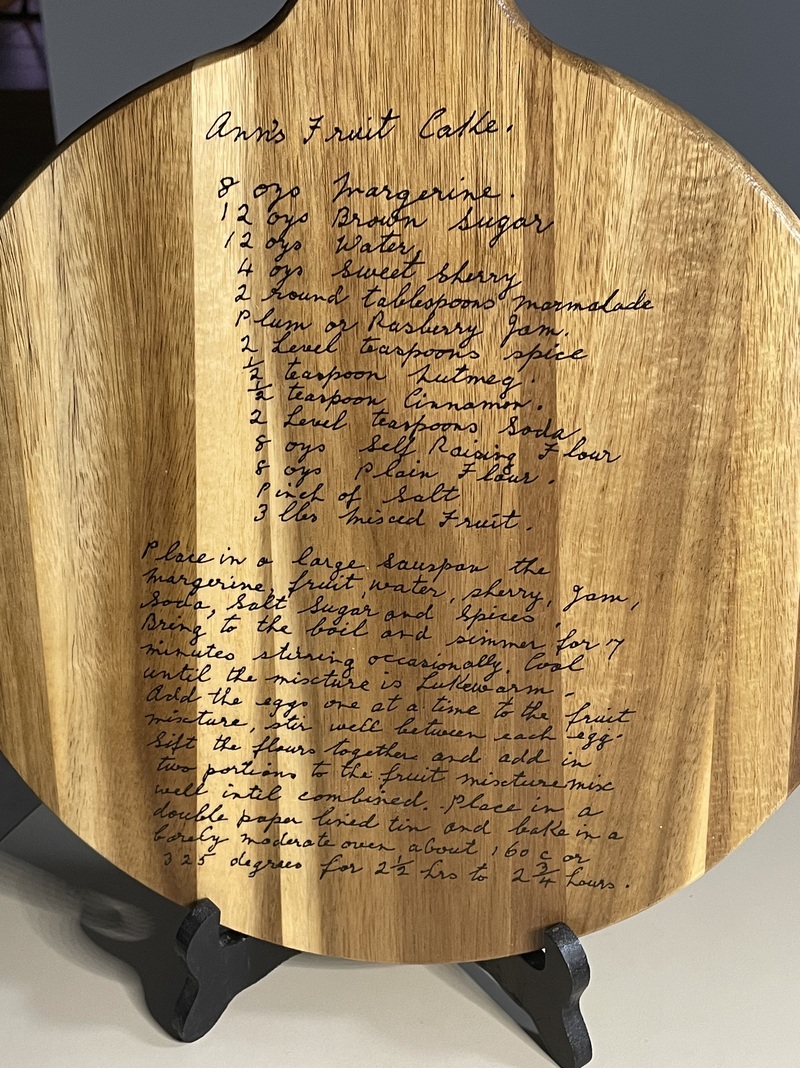 Ann's Fruit Cake.
8 ozs Margerine.
12 ozs Brown Sugar
12 ozs Water
4 ozs Sweet Sherry
2 round tablespoons Marmalade
Plum or Rasberry Jam.
2 Level teaspoons spice
½ teaspoon Nutmeg.
½ teaspoon Cinnamon.
2 Level teaspoons Soda
8 ozs Self Raising Flour
8 ozs Plain Flour.
Pinch of Salt
3 lbs Mixed Fruit.
Place in a large Sauspan the
Margerine, fruit, water, sherry, Jam,
Soda, Salt Sugar and Spices,
Bring to the boil and simmer for 7
minutes stirring occasionally. Cool
until the mixture is Lukewarm.
Add the eggs one at a time to the fruit
mixture, stir well between each egg.
Sift the flours together and add in
two portions to the fruit mixture mix
well intil combined. Place in a
double paper lined tin and bake in a
barely moderate oven about 160 c or
325 degrees for 2½ hrs to 2¾ hours.